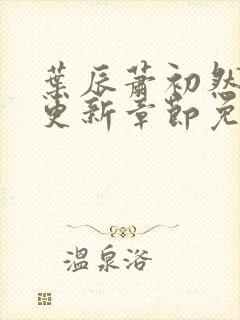 葉辰蕭初然
更新章節免
溫泉浴